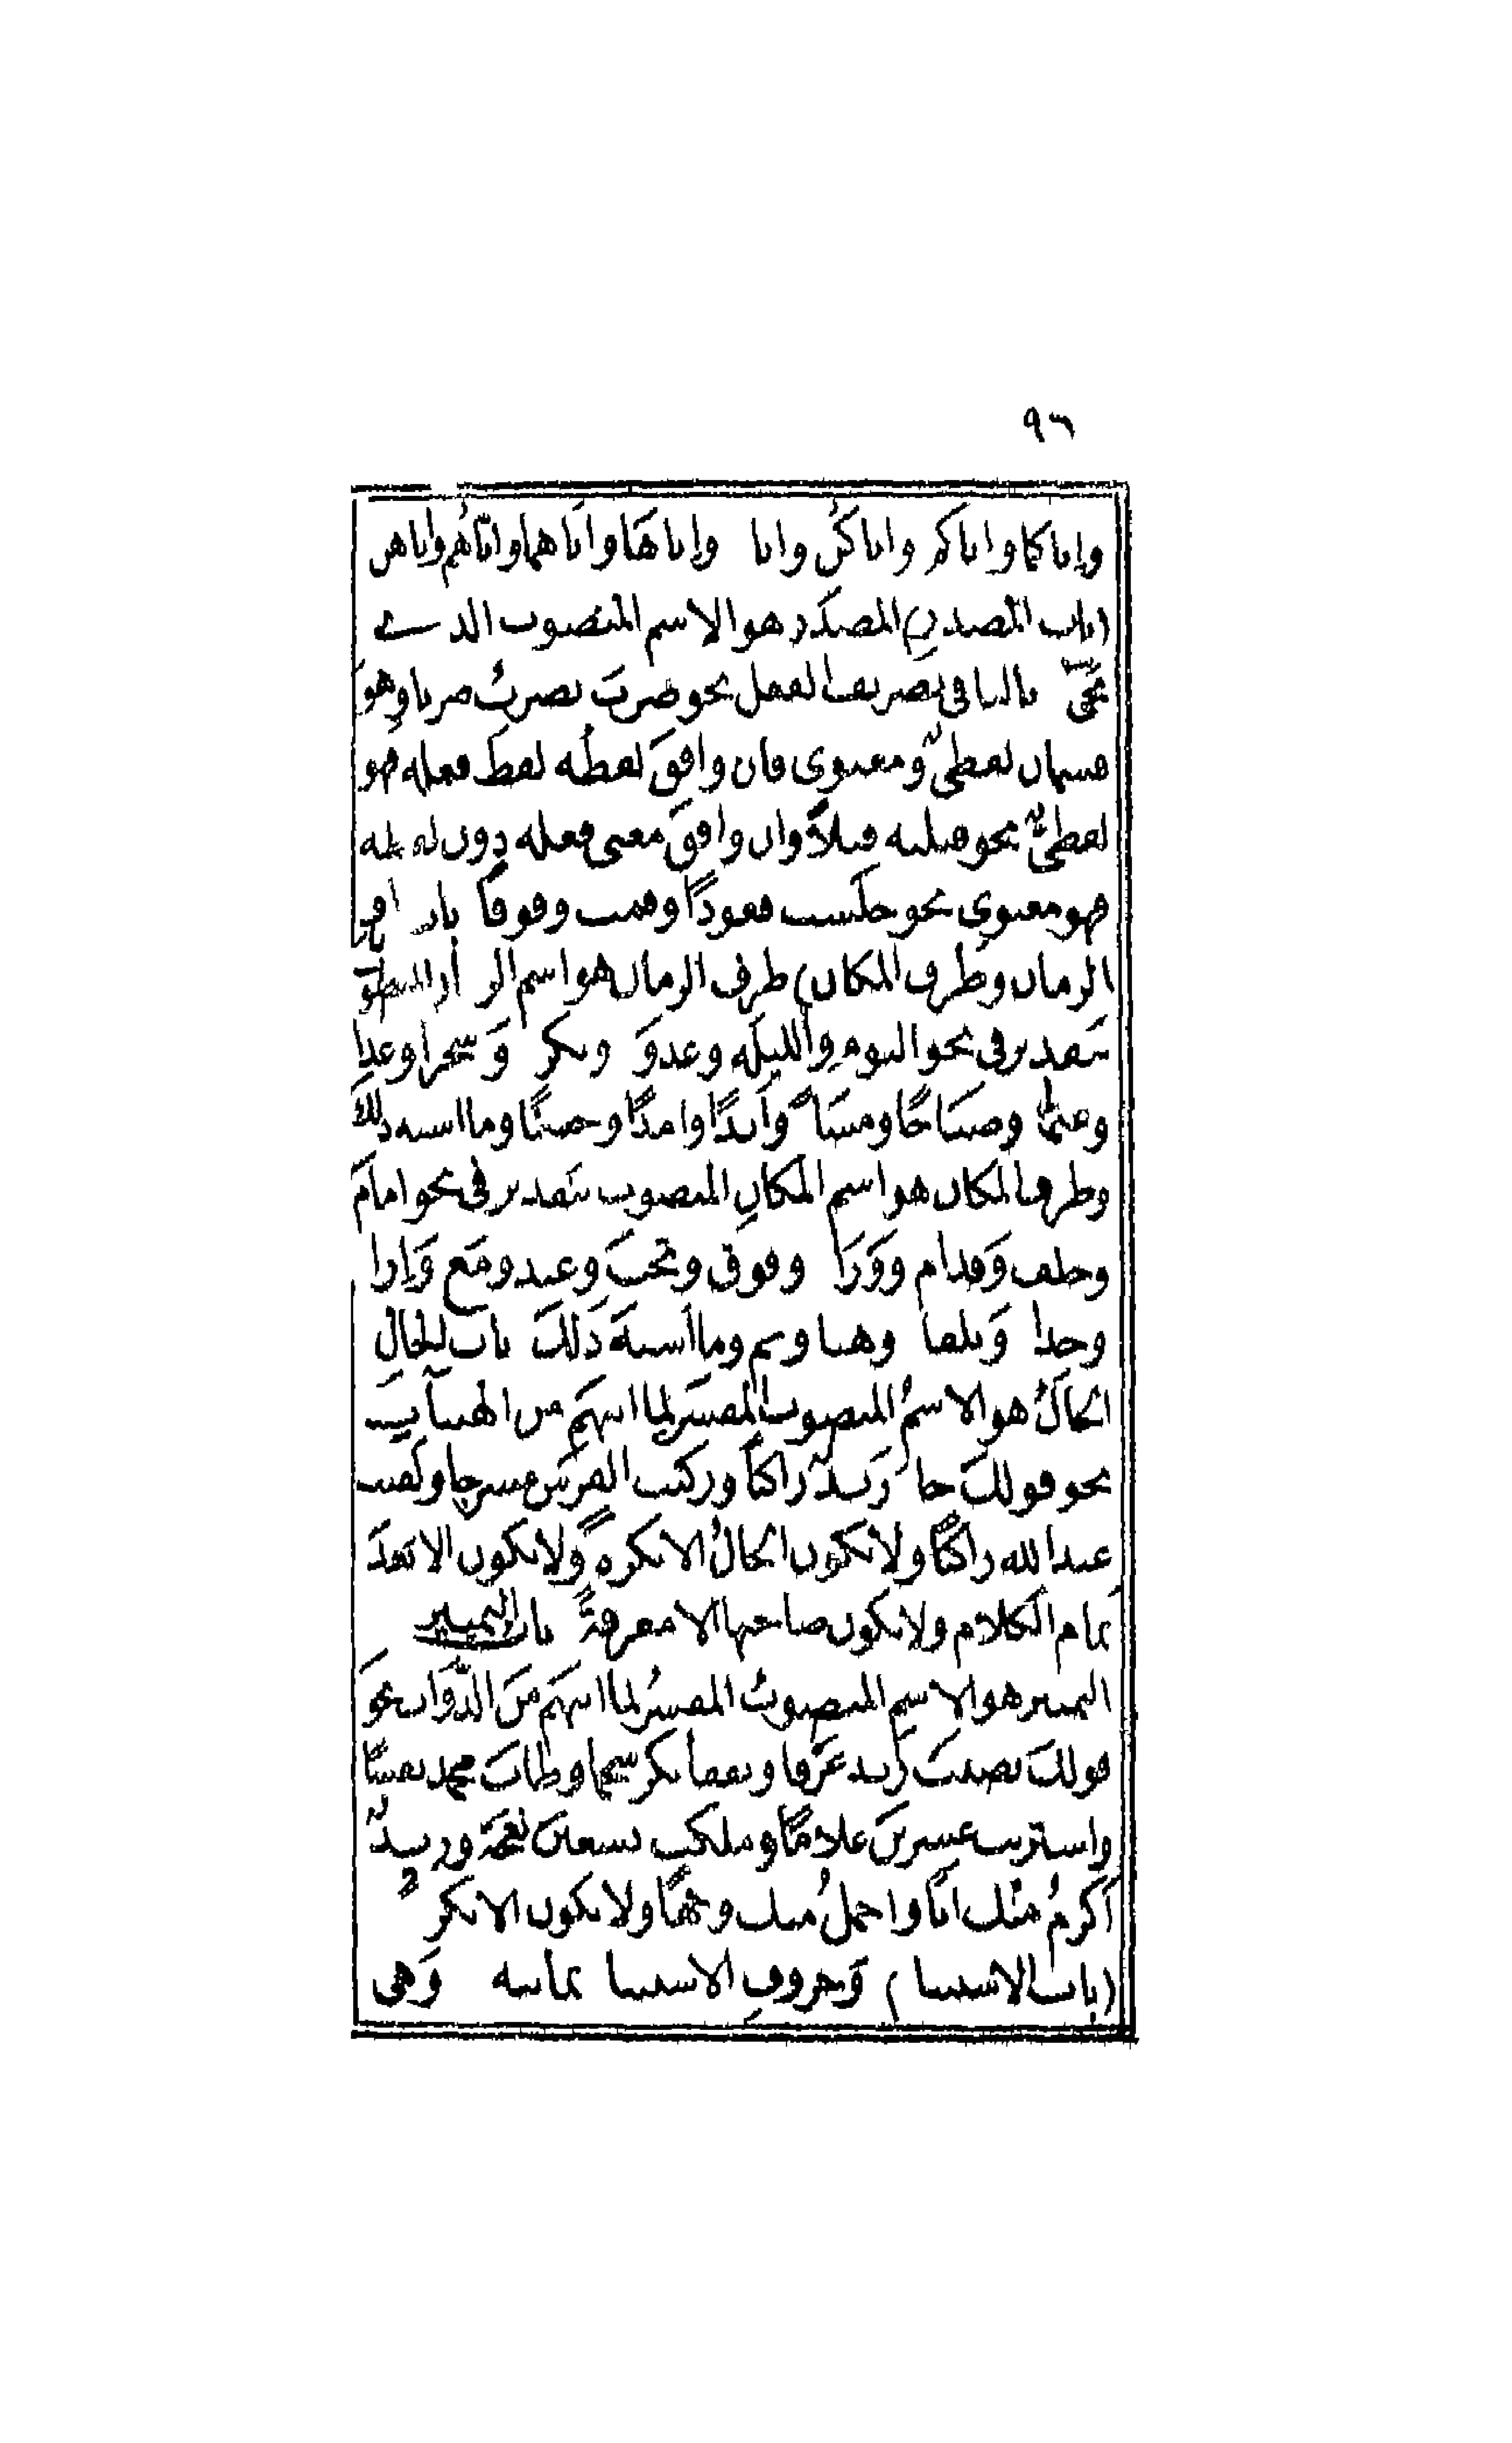 ٩٦
وإياكما وإياكم وإياكنّ وإيا وإياها وإياهما وإيّاهُم وإياهن
(باب المصدر) المصدَر هو الاسم المنصوب الذي
يجيّ ثالثا في تصريف الفعل نحو ضربَ يضربُ ضربا وهوَ
قسمان لفظيٌّ ومعنوي فان وافقَ لفظُه لفظَ فعله فهو
لفظيٌّ نحو قتلته قتلاً وان وافقَ معنى فعله دون لفظه
فهو معنوي نحو جلَست قعودًا وقمت وقوفاً باب
الزمان وظرف المكان) ظرف الزمان هو اسم الز
بتقدير في نحو اليوم والليلَه وغدوَ وبكر وَ سحرا وغدا
وعتما وصبَاحًا ومسَاً وأبدًا وامدًا وحينًا وما اشبه ذلكَ
وظرف المكان هو اسم المكانِ المنصوب بتَقدير في نحو امامَ
وخلف وَقدام ووَرَا وفوق وتحتَ وعند ومَع وَازا
وحذا وَتلقا وهنا وثم وما أشبهَ ذَلكَ بابُ الحَالِ
الحَالُ هو الاسمُ المنصوب المفسَر لما انبهَم من الهيآت
نحو قولكَ جا زَيدٌ راكبًا وركبت الفرَسَ مسرجا ولَقيت
عبد الله راكبًا ولا تكون الحَالُ الا نكرهً ولا تكون الا بعدَ
تمام الكَلام ولا يكون صاحبها الا معرفةً باب التمييز
التمييز هو الاسم المنصوبُ المفسرُ لما انبهَم منَ الذَّوات نحوَ
قولكَ تصببَ زَيد عَرَقا وتفقأ بكر شحما وطابَ محمد نفسًا
واشتريت عشرينَ غلامًا وملكت تسعينَ نعجَة وزيدٌ
أكرمُ منك ابًا واجملُ منك وجهًا ولا يكون الا نكر ةً
(باب الاستثنا) وَحروف الاستثنا ثمانيه وَهي